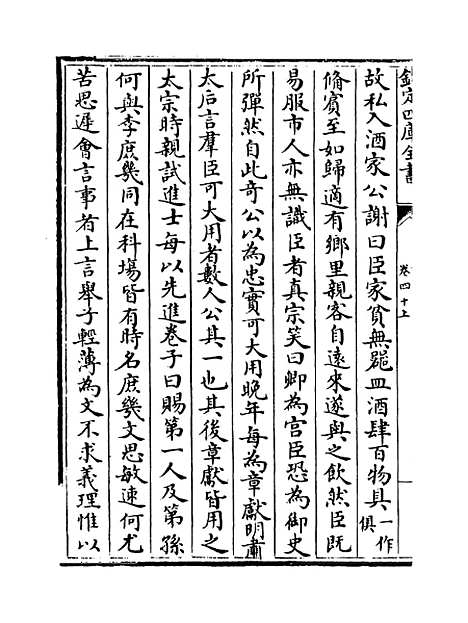 欽定四庫全書
卷四十上
故私入酒家公謝曰臣家貧無器皿酒肆百物具一作俱
備賓至如歸適有鄉里親客自逺來遂與之飲然臣既
易服市人亦無識臣者真宗笑曰卿為宫臣恐為御史
所彈然自此奇公以為忠實可大用晚年每為章獻明肅
太后言羣臣可大用者數人公其一也其後章獻皆用之
太宗時親試進士每以先進卷子曰賜第一人及第孫
何與李庶幾同在科場皆有時名庶幾文思敏速何尤
苦思遲會言事者上言舉子輕薄為文不求義理惟以